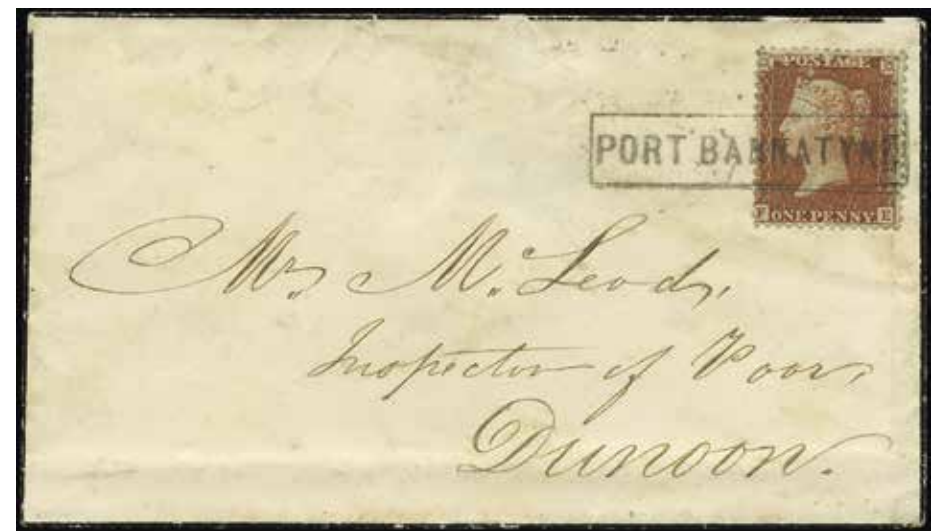 POSTAGE
PORT BANNATYNE
ONE PENNY
Mr. McLeod,
Inspector of Poor,
Dunoon.